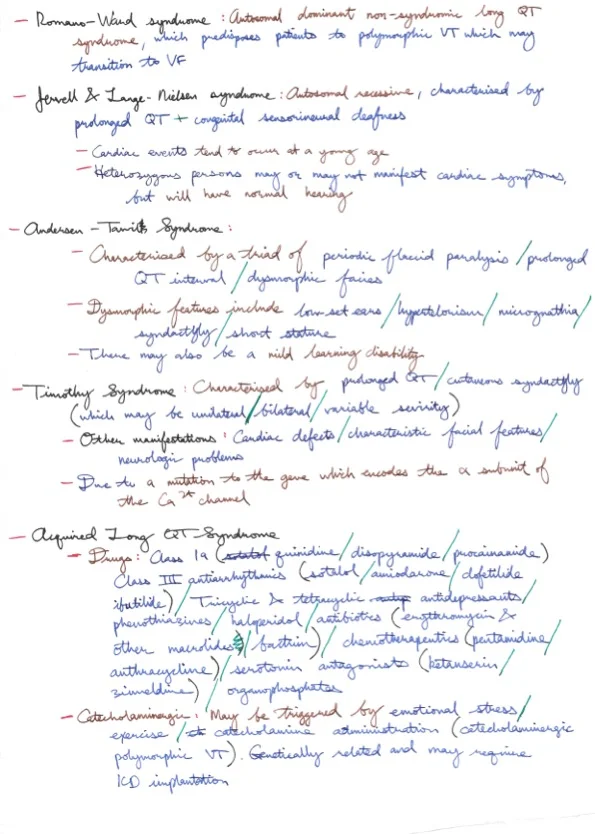 - Romano-Ward syndrome : Autosomal dominant non-syndromic long QT
syndrome, which predisposes patients to polymorphic VT which may
transition to VF
- Jervell & Lange-Nielsen syndrome : Autosomal recessive, characterised by
prolonged QT + congenital sensorineural deafness
- Cardiac events tend to occur at a young age
- Heterozygous persons may or may not manifest cardiac symptoms,
but will have normal hearing
- Andersen - Tawil Syndrome :
- Characterised by a triad of periodic flaccid paralysis / prolonged
QT interval / dysmorphic facies
- Dysmorphic features include low-set ears / hypertelorism / micrognathia /
syndactyly / short stature
- There may also be a mild learning disability
- Timothy Syndrome : Characterised by prolonged QT / cutaneous syndactyly
(which may be unilateral / bilateral / variable severity)
- Other manifestations : Cardiac defects / characteristic facial features /
neurologic problems
- Due to a mutation to the gene which encodes the α subunit of
the Ca2+ channel
- Acquired Long QT Syndrome
- Drugs : Class 1a (quinidine / disopyramide / procainamide)
Class III antiarrhythmics (sotalol / amiodarone / dofetilide
ibutilide) / Tricyclic & tetracyclic antidepressants /
phenothiazines / haloperidol / antibiotics (erythromycin &
other macrolides / bactrim) / chemotherapeutics (pentamidine /
anthracycline) / serotonin antagonists (ketanserin /
zimeldine) / organophosphates
- Catecholaminergic : May be triggered by emotional stress /
exercise / catecholamine administration (catecholaminergic
polymorphic VT). Genetically related and may require
ICD implantation